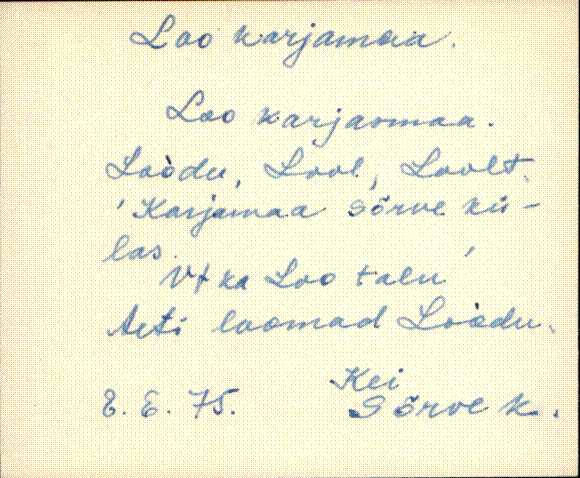 Loo karjamaa.
Loo karjaomaa.
Loòdu, Lool, Loolt.
'Karjamaa Sõrve kü-
las.'
Vt ka Loo talu
Aeti loomad Loòdu.
Kei
E. E. 75. Sõrve k.